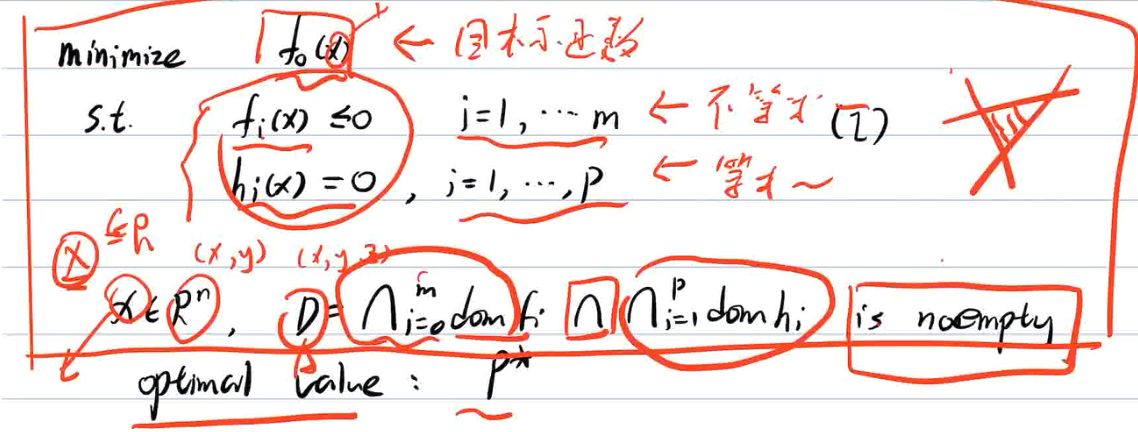 minimize f₀(x) ← 目标函数
s.t. fᵢ(x) ≤0 i=1, ⋯ m ← 不等式 (1)
hᵢ(x) = 0 , i=1, ⋯, p ← 等式
X ∈R (x,y) (x,y,z)
x ∈ Rⁿ, D = ⋂ᵢ₌₀ᵐ dom fᵢ ⋂ ⋂ᵢ₌₁ᵖ dom hᵢ is noempty
optimal value : p*